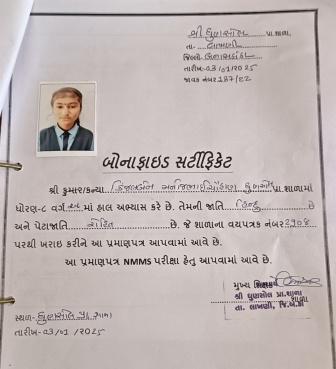 શ્રી ધુણસોલ પ્રા.શાળા,
તા- લાખણી
જિલ્લો- બનાસકાંઠા
તારીખ-03/01/2025
જાવક નંબર 137/82
બોનાફાઇડ સર્ટીફિકેટ
શ્રી કુમાર/કન્યા ધુણસોલ પ્રા.શાળામાં
ધોરણ-૮ વર્ગ માં હાલ અભ્યાસ કરે છે. તેમની જાતિ હિન્દુ છે
અને પેટાજાતિ છે. જે શાળાના વયપત્રક નંબર 2908
પરથી ખરાઇ કરીને આ પ્રમાણપત્ર આપવામાં આવે છે.
આ પ્રમાણપત્ર NMMS પરીક્ષા હેતુ આપવામાં આવે છે.
મુખ્ય શિક્ષક
શ્રી ધુણસોલ પ્રા.શાળા
તા. લાખણી, જિ.બ.કાં
સ્થળ- ધુણસોલ પ્રા શાળા
તારીખ-03/01/2025